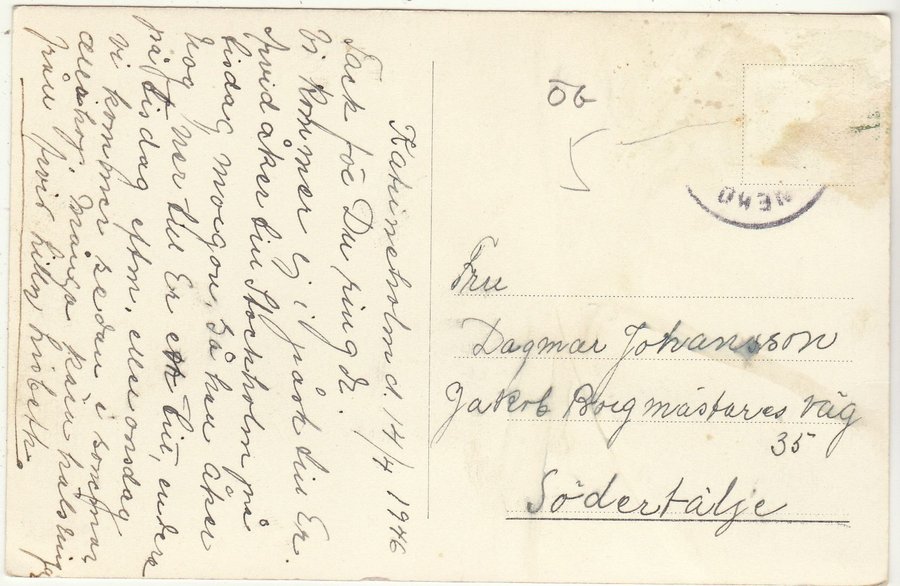 Katrineholm d. 14/4 1946
Tack för Du ringde.
Vi kommer ej i påsk till Er.
Arvid åker till Stockholm på
tisdag morgon, så han åker
nog ner till Er ett tur, endera
på tisdag eftm. eller onsdag
Vi kommer sedan i sommar
allihop. Många kära hälsningar
från Arvid Lilly Lisbeth.
Fru
Dagmar Johansson
Jakob Borgmästares väg
35
Södertälje